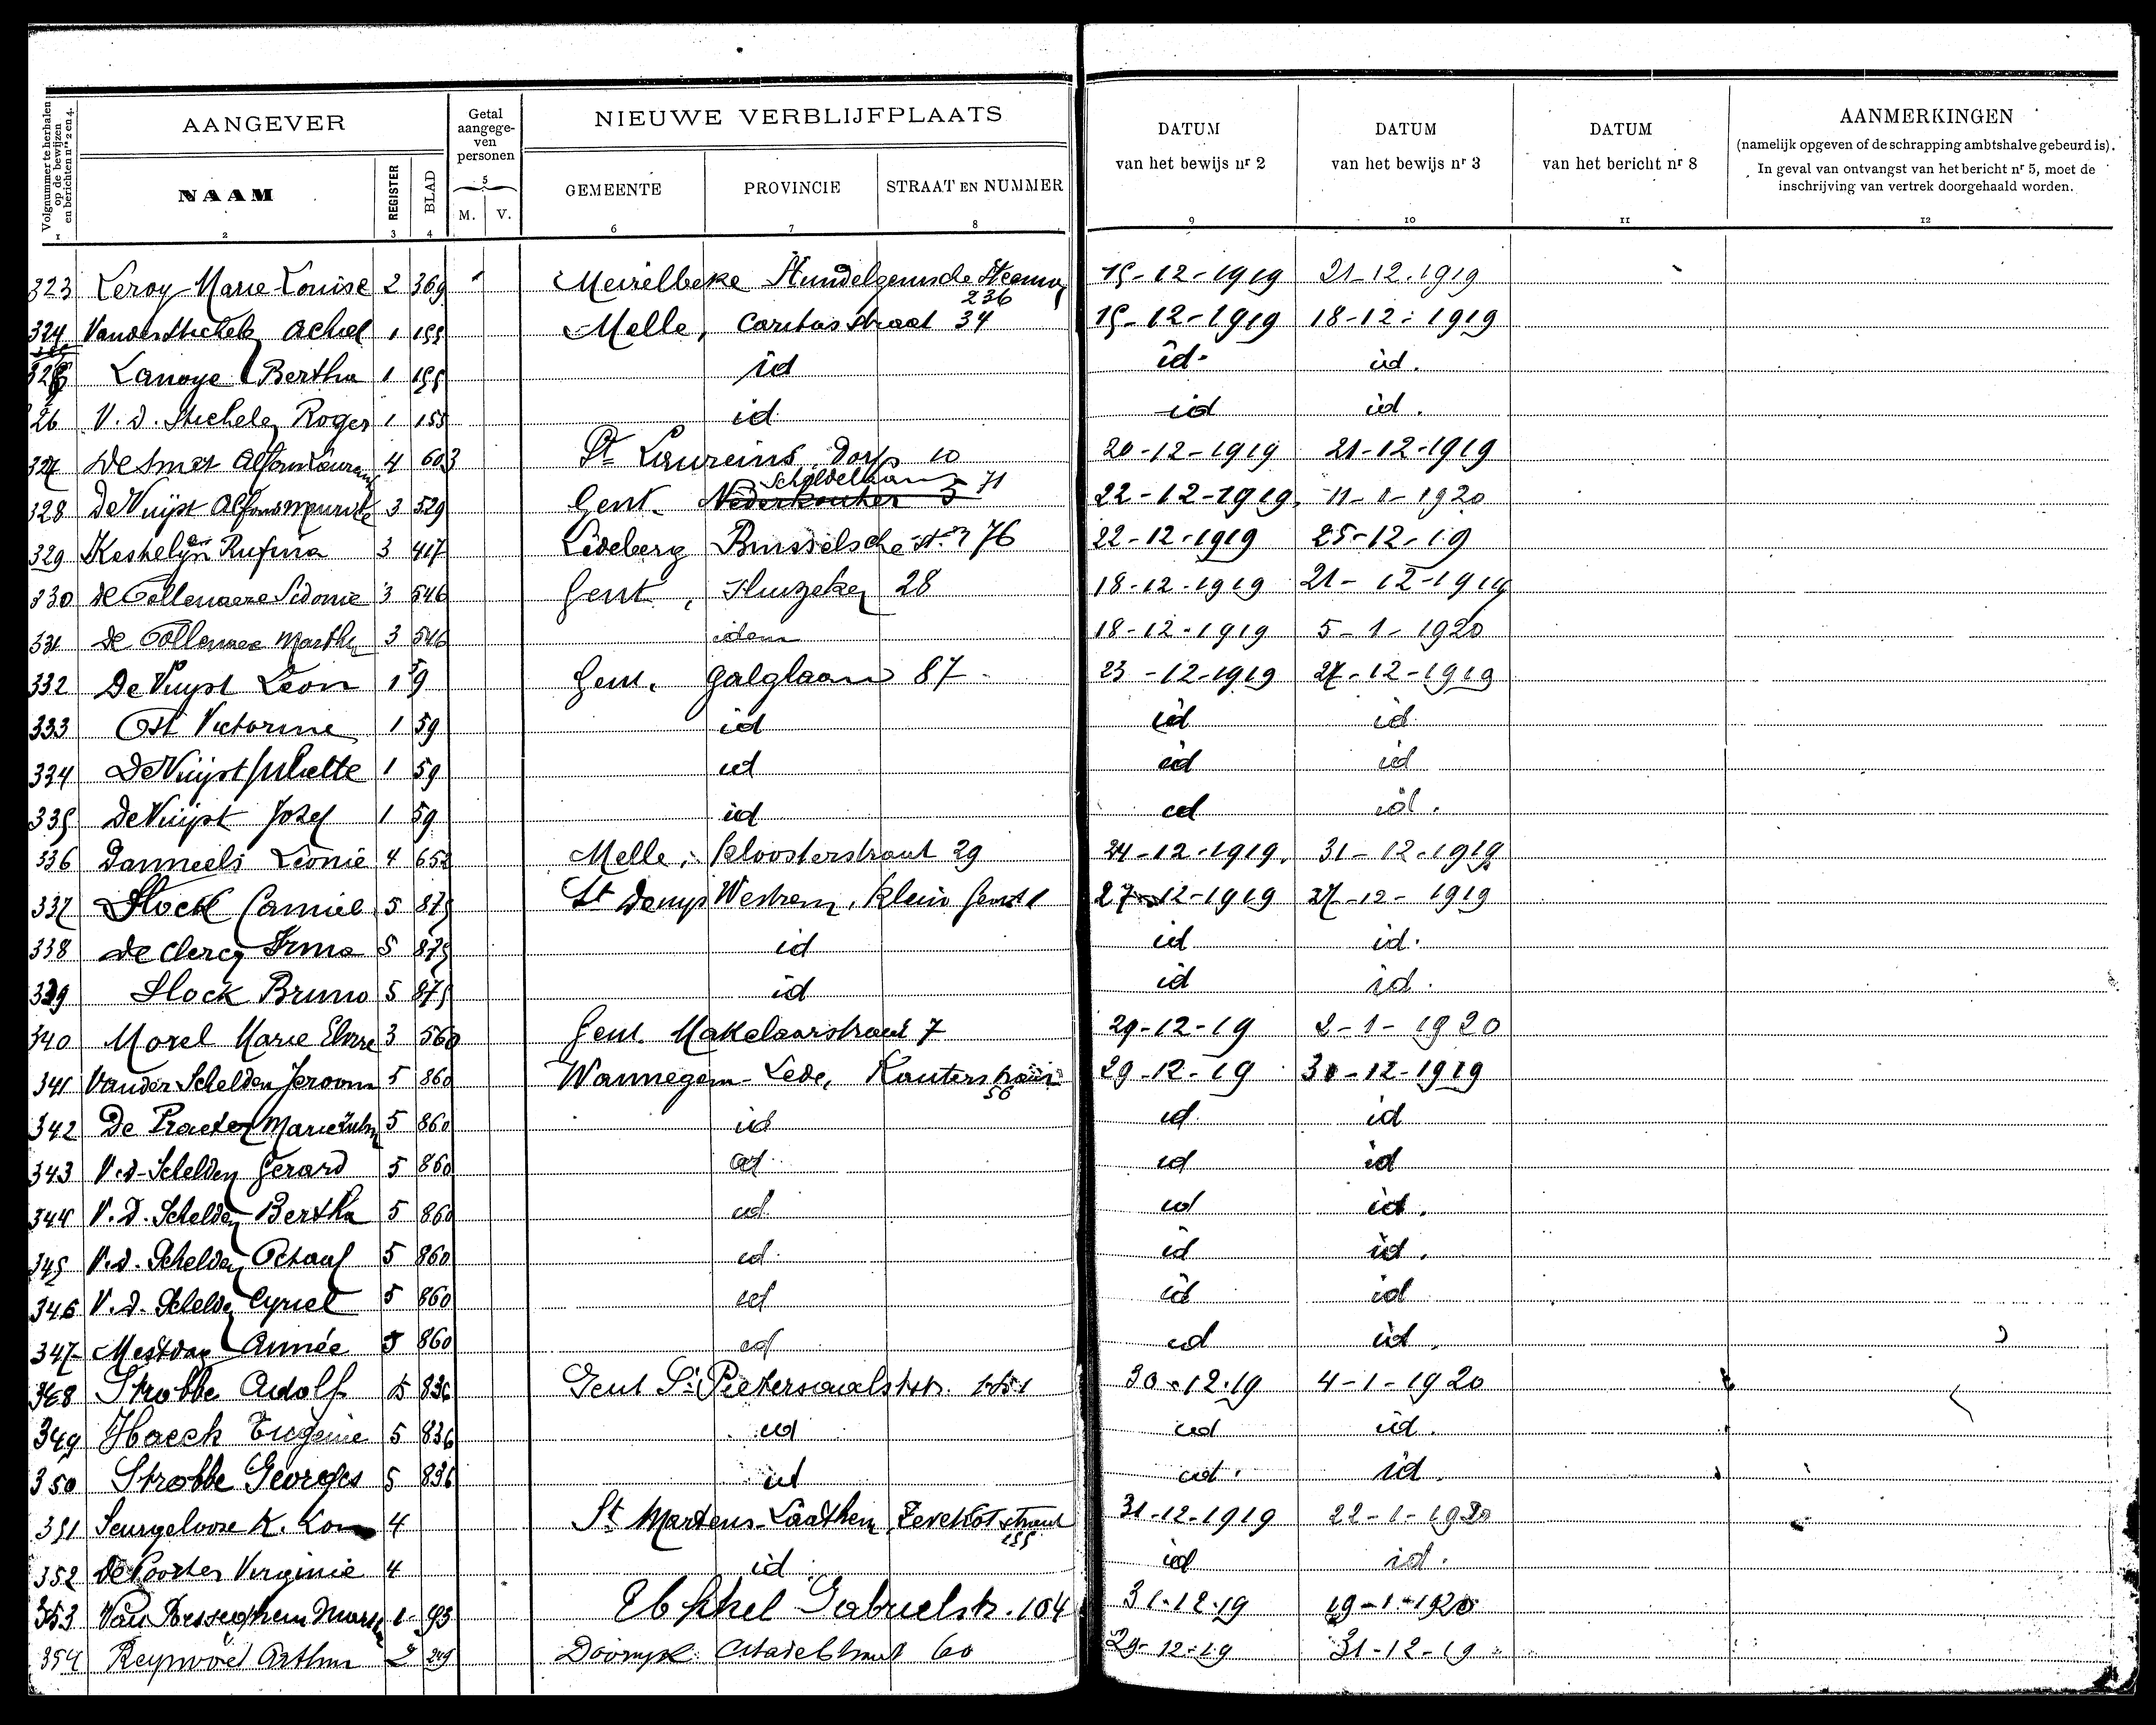 Volgnummer te herhalen op de bewijzen en berichten nrs 2 en 4.
AANGEVER
Getal aangege-ven personen
NIEUWE VERBLIJFPLAATS
DATUM van het bewijs nr 2
DATUM van het bewijs nr 3
DATUM van het bericht nr 8
AANMERKINGEN
(namelijk opgeven of de schrapping ambtshalve gebeurd is).
In geval van ontvangst van het bericht nr 5, moet de
inschrijving van vertrek doorgehaald worden.
NAAM REGISTER BLAD 5 M. V. GEMEENTE PROVINCIE STRAAT EN NUMMER
1 2 3 4 6 7 8 9 10 11 12
323 Leroy Marie Louise 2 369 1 Meirelbeke Hundelgemsche Steenw 236 15-12-1919 21-12-1919
324 Vanderstichele Achiel 1 155 Melle, Caritasstraat 34 15-12-1919 18-12-1919
325 Lanoye Bertha 1 155 id id. id.
326 V. d. Stichele Roger 1 155 id id id.
327 De Smet Alfons 4 603 St Laureins, Dorp 10 20-12-1919 21-12-1919
328 De Vuijst Alfons Maurits 3 529 Gent. Nederkouter 5 Scheldelaan 71 22-12-1919. 11-1-1920
329 Keshelijn Rufina 3 417 Ledeberg Brusselsche st. 76 22-12-1919 25-12-19
330 De Collenaere Sidonie 3 546 Gent, Sluizeken 28 18-12-1919 21-12-1919
331 De Collenaere Martha 3 546 idem 18-12-1919 5-1-1920
332 De Vuyst Leon 1 59 Gent. Galglaan 87 23-12-1919 27-12-1919
333 Ost Victorine 1 59 id id id
334 De Vuijst Juliette 1 59 id id id
335 De Vuijst Jozef 1 59 id id id.
336 Danneels Leonie 4 652 Melle, Kloosterstraat 29 24-12-1919. 31-12-1919
337 Slock Camiel 5 875 St Denys Westrem, Klein Gent 1 27-12-1919 27-12-1919
338 De Clercq Irma 5 875 id id id.
339 Slock Bruno 5 875 id id id.
340 Morel Marie Elvire 3 560 Gent. Makelaarstraat 7 29-12-19 2-1-1920
341 Vander Schelden Jeroom 5 860 Wannegem-Lede, Kouterstraat 56 29-12-19 30-12-1919
342 De Praeter Marie 5 860 id id id
343 V.d. Schelden Gerard 5 860 id id id
344 V.d. Schelden Bertha 5 860 id id id.
345 V.d. Schelden Octaaf 5 860 id id id.
346 V.d. Schelden Cyriel 5 860 id id id
347 Mestdag Aimée 5 860 id id id.
348 Strobbe Adolf 5 836 Gent St Pietersaalststr. 151 30-12-19 4-1-1920
349 Haeck Eugenie 5 836 id id id.
350 Strobbe Georges 5 836 id id. id.
351 Seurgeloose K. 4 St Martens-Laathem, Zevekotstraat 155 31-12-1919 22-1-1920
352 De Poorter Virginie 4 id id id.
353 Van Hesseghem 1 93 Elskkel Gabrielstr. 104 31-12-19 19-1-1920
354 Reynvoet Arthur 2 249 Doornyk Citadelstraat 60 29-12-19 31-12-19